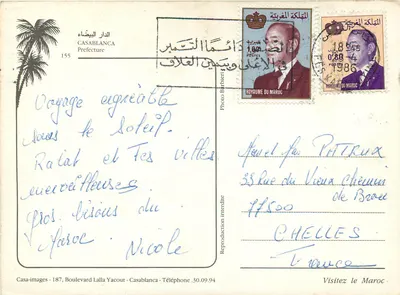 الدار البيضاء
CASABLANCA
Prefecture
155
ضعوا دائما الطنبر
في الأعلى ويمين الغلاف
المملكة المغربية
ROYAUME DU MAROC
المملكة المغربية
0,80
ROYAUME DU MAROC
1986
Voyage agréable
sous le soleil.
Rabat et Fes villes
merveilleuses
Gros bisous du
Maroc
Nicole
Photo Barbieri
Reproduction interdite
33 Rue du Vieux Chemin
de Brou
77500
CHELLES
France
Casa-images - 187, Boulevard Lalla Yacout - Casablanca - Téléphone .30.09.94
Visitez le Maroc